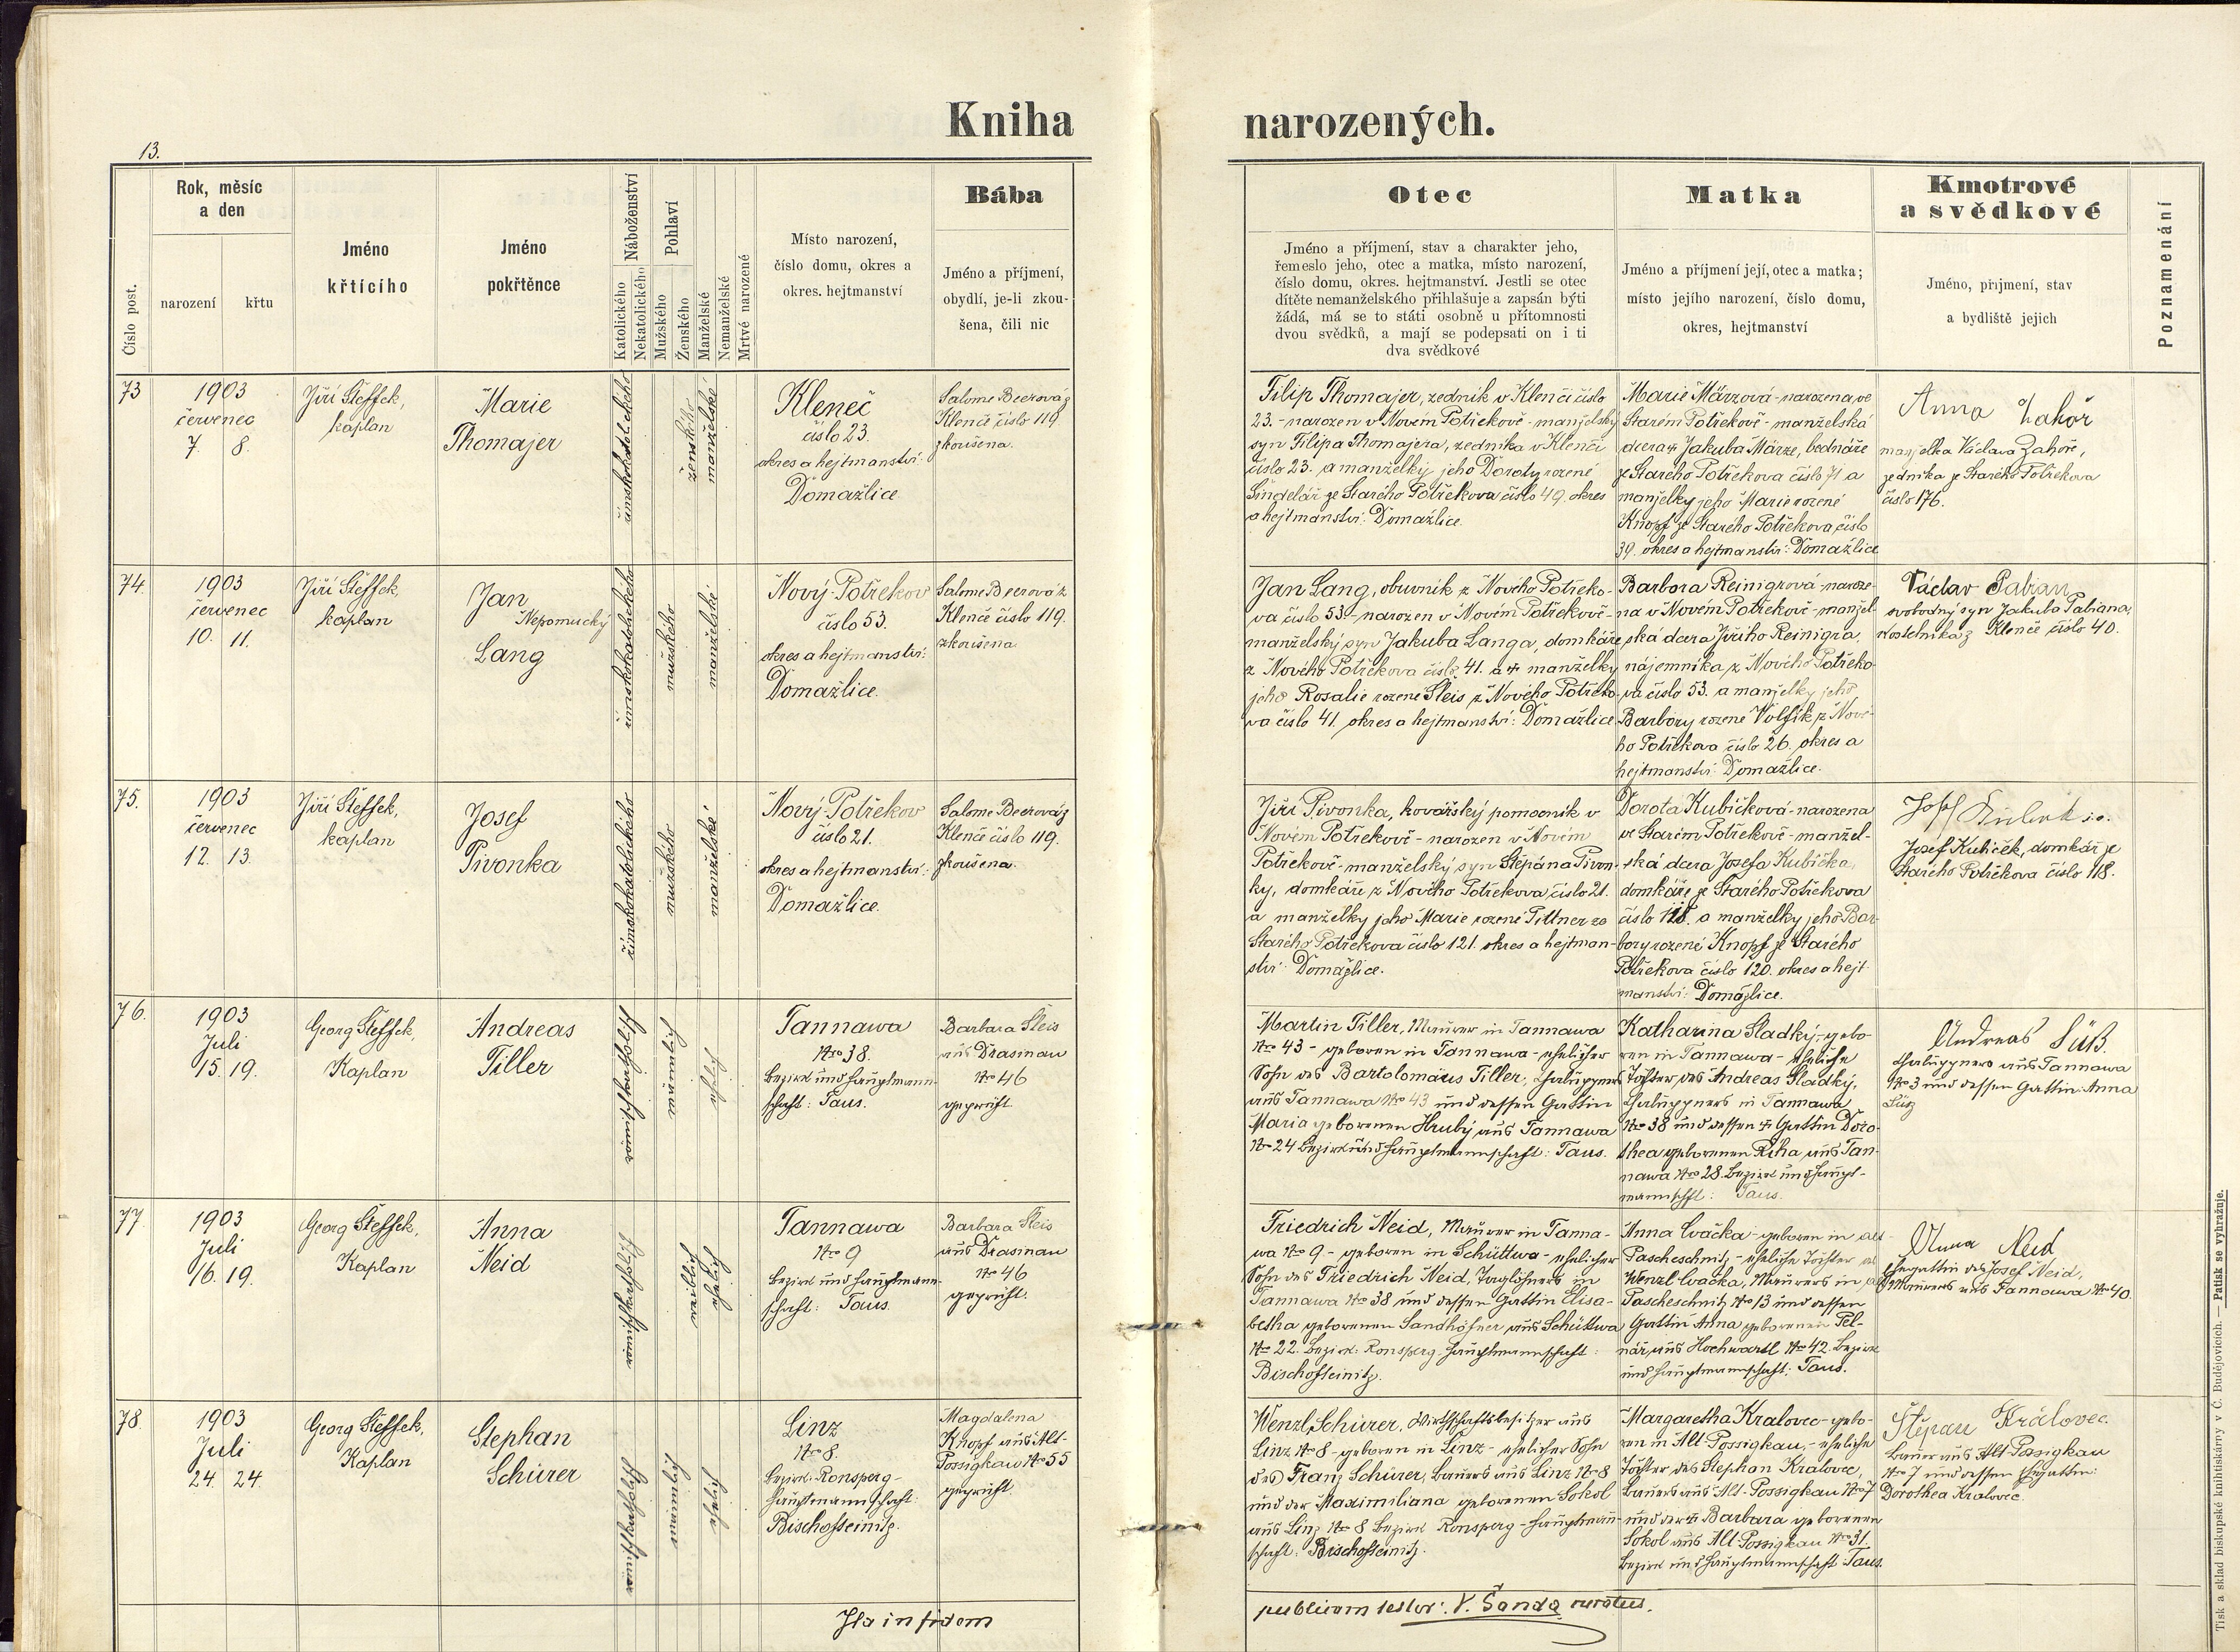 Kniha narozených.
13.
Číslo post.
Rok, měsíc
a den
narození
křtu
Jméno
křtícího
Jméno
pokřtěnce
Náboženství
Katolického
Nekatolického
Pohlaví
Mužského
Ženského
Manželské
Nemanželské
Mrtvé narozené
Místo narození,
číslo domu, okres a
okres. hejtmanství
Bába
Jméno a příjmení,
obydlí, je-li zkou-
šena, čili nic
Otec
Jméno a příjmení, stav a charakter jeho,
řemeslo jeho, otec a matka, místo narození,
číslo domu, okres. hejtmanství. Jestli se otec
dítěte nemanželského přihlašuje a zapsán býti
žádá, má se to státi osobně u přítomnosti
dvou svědků, a mají se podepsati on i ti
dva svědkové
Matka
Jméno a příjmení její, otec a matka;
místo jejího narození, číslo domu,
okres, hejtmanství
Kmotrové
a svědkové
Jméno, příjmení, stav
a bydliště jejich
Poznamenání
73
1903
červenec
7. 8.
Jiří Šteffek,
kaplan
Marie
Thomajer
římskokatolického
ženského
manželské
Kleneč
číslo 23.
okres a hejtmanství:
Domažlice
Salome Beerová z
Klenče číslo 119
zkoušena.
Filip Thomajer, zedník v Klenči číslo
23. - narozen v Novém Potřekově - manželský
syn Filipa Thomajera, zedníka v Klenči
číslo 23. a manželky jeho Doroty rozené
Šindelář ze Starého Potřekova číslo 49. okres
a hejtmanství: Domažlice.
Marie Märzová - narozena ve
Starém Potřekově - manželská
dcera ✝ Jakuba Märze, bednáře
ze Starého Potřekova číslo 71 a
manželky jeho Marie rozené
Knopf ze Starého Potřekova číslo
39. okres a hejtmanství: Domažlice
Anna Zahoř
manželka Václava Zahoře,
zedníka ze Starého Potřekova
číslo 176.
74.
1903
červenec
10. 11.
Jiří Šteffek,
kaplan
Jan
Nepomucký
Lang
římskokatolického
mužského
manželské
Nový Potřekov
číslo 53.
okres a hejtmanství:
Domažlice.
Salome Beerová z
Klenče číslo 119.
zkoušena
Jan Lang, obuvník z Nového Potřeko-
va číslo 53. - narozen v Novém Potřekově -
manželský syn Jakuba Langa, domkáře
z Nového Potřekova číslo 41. a ✝ manželky
jeho Rosalie rozené Sleis z Nového Potřeko-
va číslo 41. okres a hejtmanství: Domažlice
Barbora Reinigrová - naroze-
na v Novém Potřekově - manžel-
ská dcera Jiřího Reinigra,
nájemníka z Nového Potřeko-
va číslo 53. a manželky jeho
Barbory rozené Volfík z Nové-
ho Potřekova číslo 26. okres a
hejtmanství: Domažlice.
Václav Pabian
svobodný syn Jakuba Pabiana,
kostelníka z Klenče číslo 40.
75.
1903
červenec
12. 13.
Jiří Šteffek,
kaplan
Josef
Pivonka
římskokatolického
mužského
manželské
Nový Potřekov
číslo 21.
okres a hejtmanství:
Domažlice.
Salome Beerová z
Klenče číslo 119.
zkoušena.
Jiří Pivonka, kovářský pomocník v
Novém Potřekově - narozen v Novém
Potřekově - manželský syn Štěpána Pivon-
ky, domkáře z Nového Potřekova číslo 21.
a manželky jeho Marie rozené Pittner ze
Starého Potřekova číslo 121. okres a hejtman-
ství: Domažlice.
Dorota Kubičková - narozena
ve Starém Potřekově - manžel-
ská dcera Josefa Kubíčka,
domkáře ze Starého Potřekova
číslo 118. a manželky jeho Bar-
bory rozené Knopf ze Starého
Potřekova číslo 120. okres a hejt-
manství: Domažlice.
Josef
Josef Kubíček, domkář ze
Starého Potřekova číslo 118.
76.
1903
Juli
15. 19.
Georg Šteffek,
Kaplan
Andreas
Tiller
römischkatholisch
männlich
ehelich
Tannawa
Nro 38.
Bezirk und Hauptmann-
schaft: Taus.
Barbara Sleis
aus Drasinau
Nro 46
geprüft.
Martin Tiller, Maurer in Tannawa
Nro 43 - geboren in Tannawa - ehelicher
Sohn des Bartolomäus Tiller, Chaluppners
aus Tannawa Nro 43 und dessen Gattin
Maria geborenen Hrubý aus Tannawa
Nro 24 Bezirk und Hauptmannschaft: Taus.
Katharina Sladký - gebo-
ren in Tannawa - eheliche
Tochter des Andreas Sladký,
Chaluppners in Tannawa
Nro 38 und dessen ✝ Gattin Doro-
thea geborenen Řiha aus Tan-
nawa Nro 28. Bezirk und Haupt-
mannschft: Taus.
Andreas Süß
Chaluppners aus Tannawa
Nro 3 und dessen Gattin: Anna
Süß
77.
1903
Juli
16. 19.
Georg Šteffek,
Kaplan
Anna
Neid
römischkatholisch
weiblich
ehelich
Tannawa
Nro 9
Bezirk und Hauptmann-
schaft: Taus.
Barbara Sleis
aus Drasinau
Nro 46
geprüft.
Friedrich Neid, Maurer in Tanna-
wa Nro 9 - geboren in Schüttwa - ehelicher
Sohn des Friedrich Neid, Taglöhners in
Tannawa Nro 38 und dessen Gattin Elisa-
betha geborenen Sandhöfner aus Schüttwa
Nro 22. Bezirk: Ronsperg Hauptmannschaft:
Bischofteinitz.
Anna Cvačka - geboren in Alt-
Pascheschnitz - eheliche Tochter des
Wenzl Cvačka, Maurers in Alt-
Pascheschnitz Nro 13 und dessen
Gattin Anna geborenen Pel-
nář aus Hochwartl Nro 42. Bezirk
und Hauptmannschaft: Taus.
Anna Neid
Ehegattin des Josef Neid,
Maurers aus Tannawa Nro 40.
78.
1903
Juli
24. 24.
Georg Šteffek,
Kaplan
Stephan
Schürer
römischkatholisch
männlich
ehelich
Linz
Nro 8.
Bezirk: Ronsperg -
Hauptmannschaft:
Bischofteinitz.
Magdalena
Knopf aus Alt-
Possigkau Nro 55
geprüft
Wenzl Schürer, Wirtschaftsbesitzer aus
Linz Nro 8 - geboren in Linz - ehelicher Sohn
des Franz Schürer, Bauers aus Linz Nro 8
und der Maximiliana geborenen Sokol
aus Linz Nro 8 Bezirk Ronsperg - Hauptmann-
schaft: Bischofteinitz.
Margaretha Kralovec - gebo-
ren in Alt-Possigkau, - eheliche
Tochter des Stephan Kralovec,
Bauers aus Alt-Possigkau Nro 7
und der ✝ Barbara geborenen
Sokol aus Alt-Possigkau Nro 31.
Bezirk und Hauptmannschaft Taus.
Štěpan Královec
Bauer aus Alt Possigkau
Nro 7 und dessen Ehegattin:
Dorothea Kralovec.
Ita in fidem
publicam testor: V. Šanda curatus.
Tisk a sklad biskupské knihtiskárny v Č. Budějovicích. — Patisk se vyhražuje.